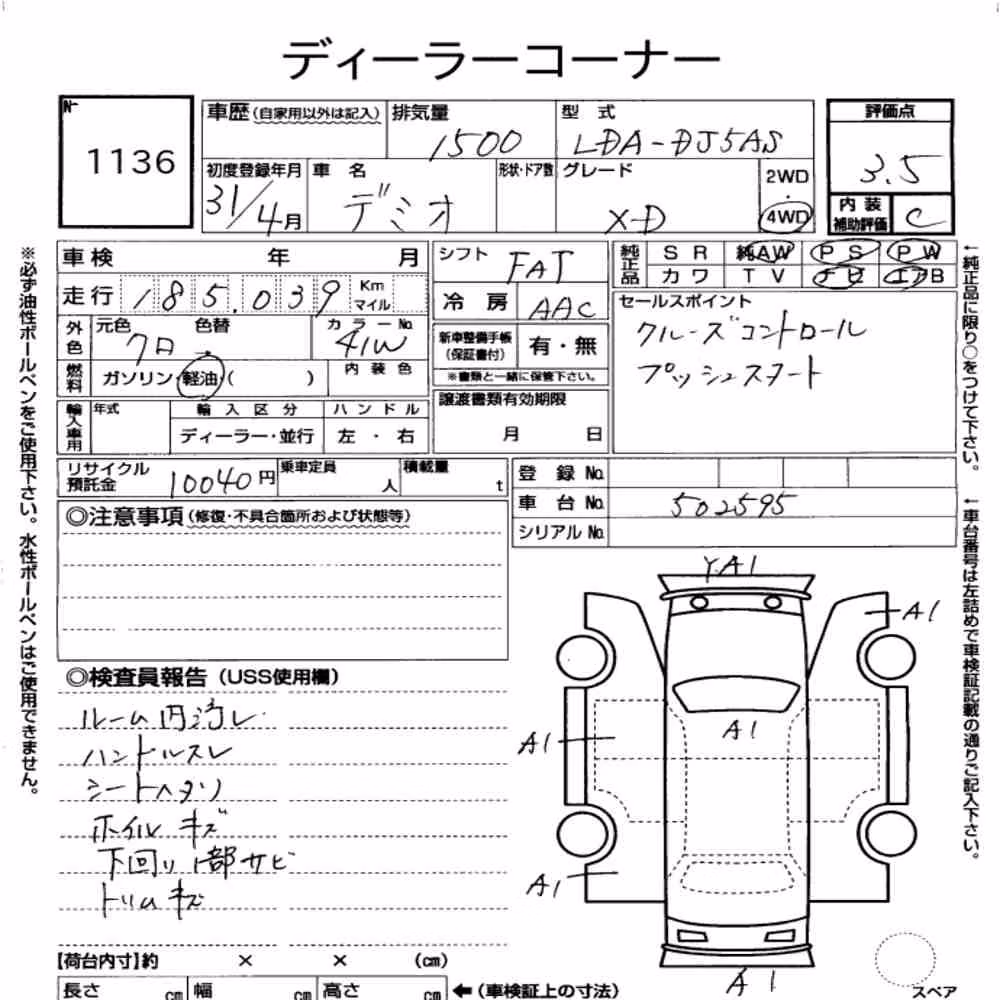 ディーラーコーナー
No.
1136
車歴(自家用以外は記入)
排気量
1500
型 式
LDA-DJ5AS
評価点
3.5
初度登録年月
31/4月
車 名
デミオ
形状・ドア数
グレード
XD
2WD
・
4WD
内 装
補助評価
C
車検 年 月
シフト
FAT
純正品
S R 純AW P S P W
カワ T V ナビ エアB
走行 185,039 Km マイル
冷 房
AAC
セールスポイント
クルーズコントロール
プッシュスタート
外色
元色 色替
カラーNo.
41W
新車整備手帳
(保証書付)
有・無
※書類と一緒に保管下さい。
燃料
ガソリン・軽油・( )
内 装 色
輸入車用
年式
輸 入 区 分
ハ ン ド ル
ディーラー・並行
左 ・ 右
譲渡書類有効期限
月 日
リサイクル
預託金
10040円
乗車定員
人
積載量
t
登 録 No.
車 台 No.
502595
シリアル No.
◎注意事項(修復・不具合箇所および状態等)
◎検査員報告(USS使用欄)
ルーム内汚レ
ハンドルスレ
シートヘタリ
ホイル キズ
下回リ1部サビ
トリム キズ
YA1
A1
A1
A1
A1
A1
スペア
【荷台内寸】約 × × (cm)
長さ cm 幅 cm 高さ cm
←(車検証上の寸法)
※必ず油性ボールペンをご使用下さい。水性ボールペンはご使用できません。
←純正品に限り○をつけて下さい。
←車台番号は左詰めで車検証記載の通りご記入下さい。